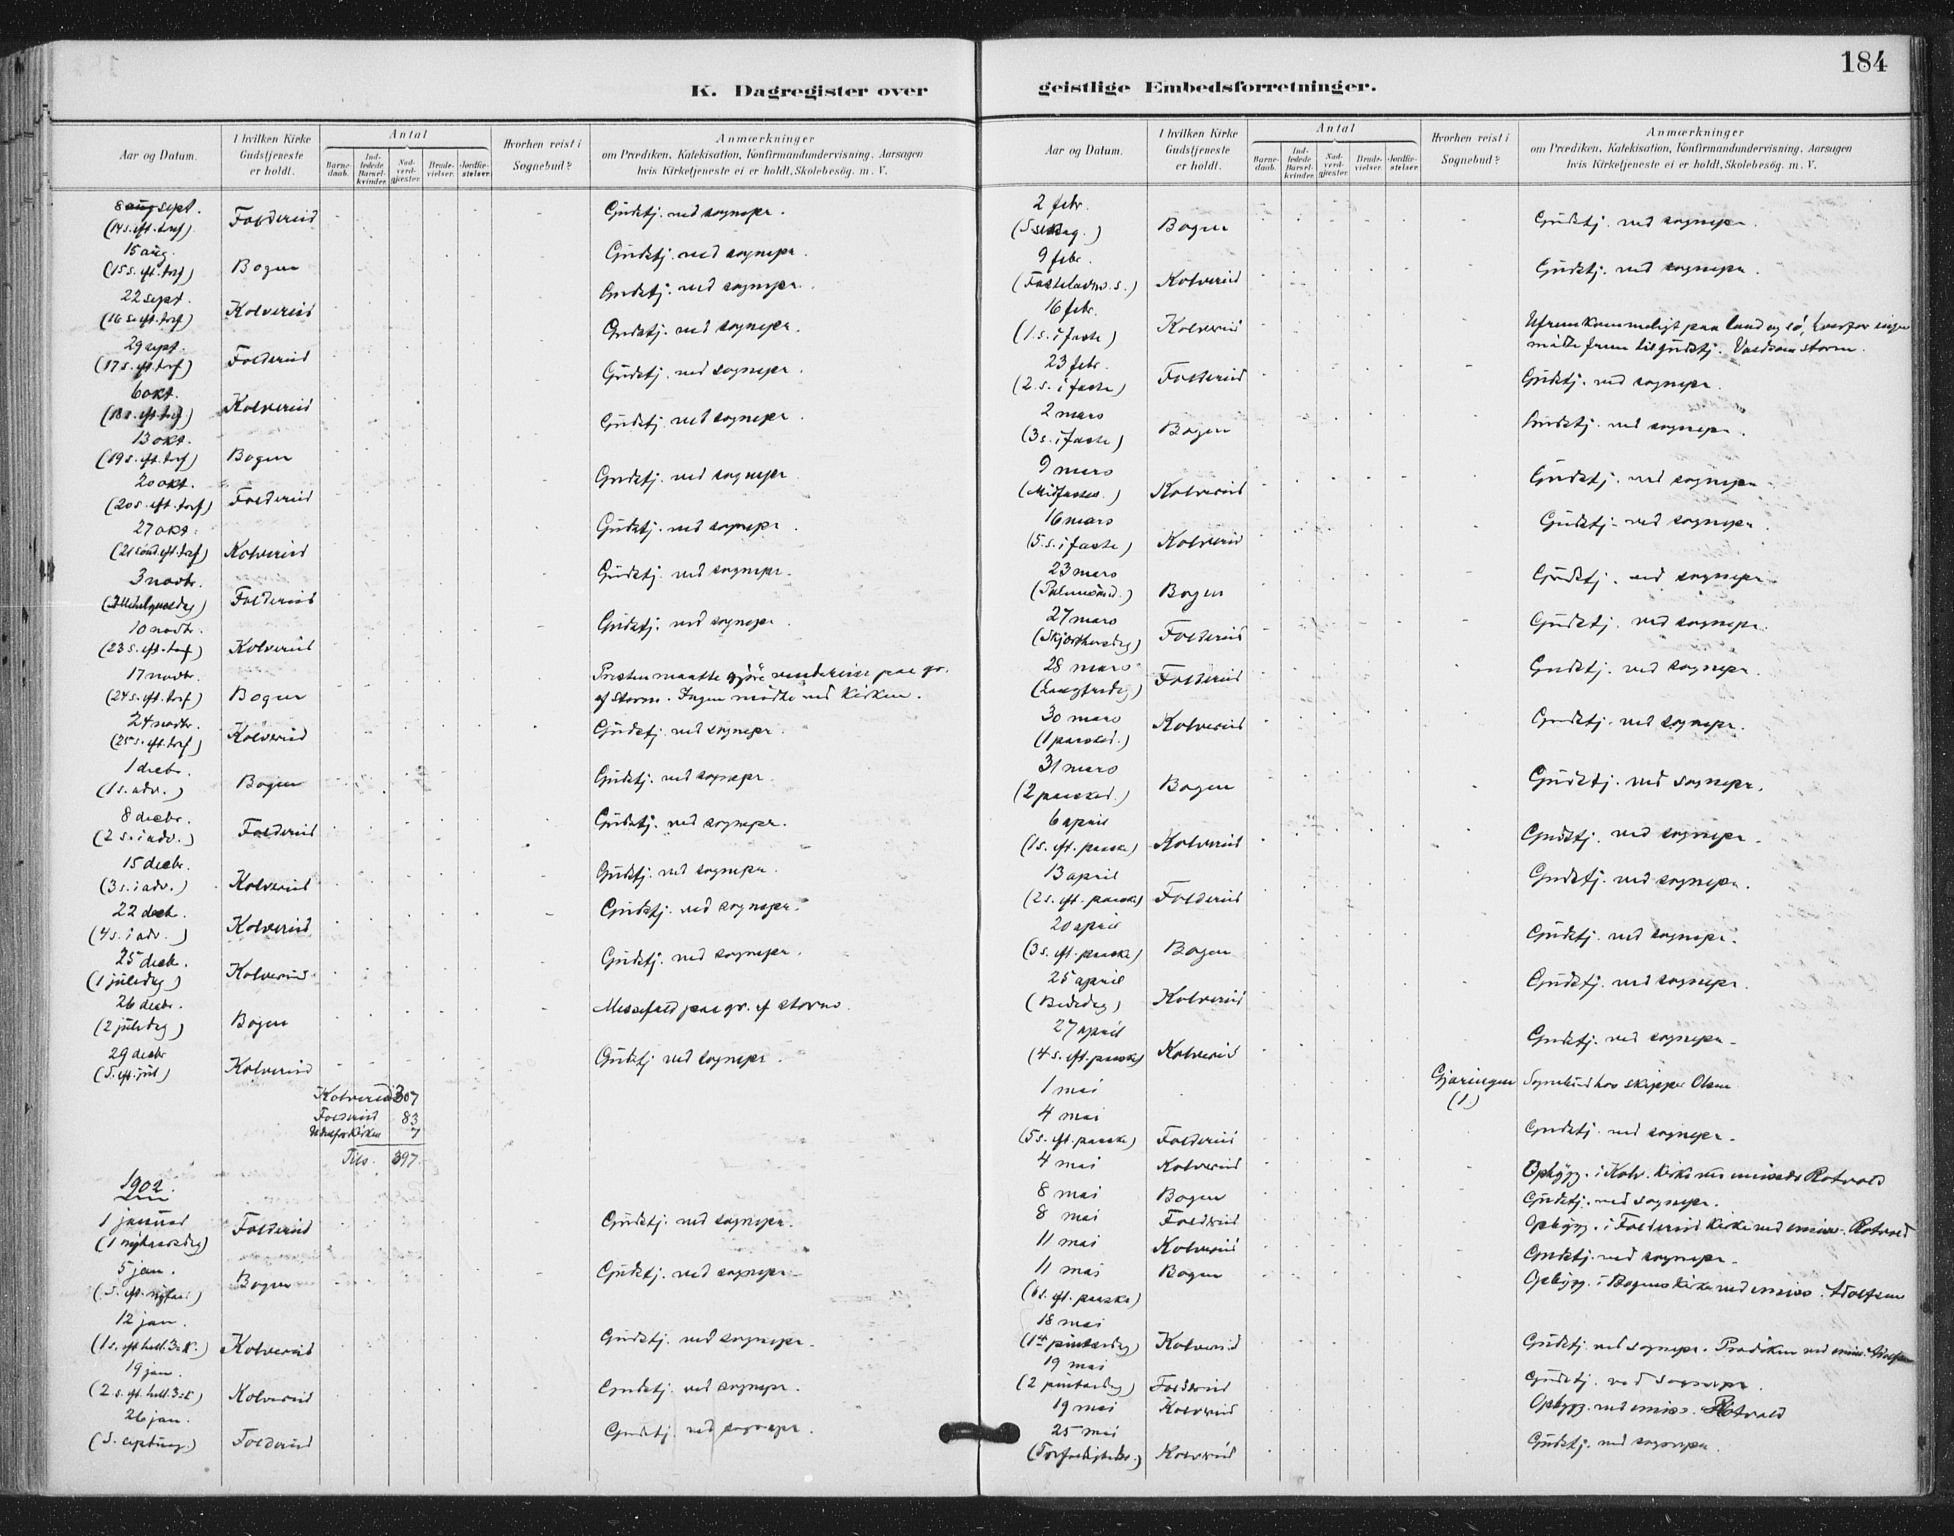 184
K. Dagregister over
geistlige Embedsforretninger.
Aar og Datum.
I hvilken Kirke Gudstjeneste er holdt.
Antal
Barne-daab.
Ind-ledede Barsel-kvinder.
Nad-verd-gjester.
Brude-vielser.
Jordfæ-stelser.
Hvorhen reist i Sognebud?
Anmærkninger
om Prædiken, Katekisation, Konfirmandundervisning, Aarsagen
hvis Kirketjeneste ei er holdt, Skolebesög. m. V.
8 sept. (14 s. eft. tref) Foldereid Gudstj. ved sognepr.
15 aug. (15 s. eft. tref) Bogen Gudstj. ved sognepr.
22 sept. (16 s. eft. tref) Kolvereid Gudstj. ved sognepr.
29 sept. (17 s. eft. tref) Foldereid Gudstj. ved sognepr.
6 okt. (18 s. eft. tref) Kolvereid Gudstj. ved sognepr.
13 okt. (19 s. eft. tref) Bogen Gudstj. ved sognepr.
20 okt. (20 s. eft. tref) Foldereid Gudstj. ved sognepr.
27 okt. (21 sönd. eft. tref) Kolvereid Gudstj. ved sognepr.
3 novbr. (Allehelgensdag) Foldereid Gudstj. ved sognepr.
10 novbr. (23 s. eft. tref) Kolvereid Gudstj. ved sognepr.
17 novbr. (24 s. eft. tref) Bogen Presten maatte gjöre vendereise paa gr.
af storm. Ingen mödte ved kirken.
24 novbr. (25 s. eft. tref) Kolvereid Gudstj. ved sognepr.
1 decbr. (1 s. adv.) Bogen Gudstj. ved sognepr.
8 decbr. (2 s. i adv.) Foldereid Gudstj. ved sognepr.
15 decbr. (3 s. i adv.) Kolvereid Gudstj. ved sognepr.
22 decb. (4 s. i adv.) Kolvereid Gudstj. ved sognepr.
25 decb. (1 juledag) Kolvereid Gudstj. ved sognepr.
26 decbr. (2 juledag) Bogen Messefald paa gr. af storm.
29 decbr (S. eft. jul) Kolvereid Gudstj ved sognepr.
Kolvereid 307
Foldereid 83
Udenfor kirken 7
Tils. 397
1902.
1 januar (1 nytaarsdag) Foldereid Gudstj. ved sognepr.
5 jan. (S. eft. nytaar) Bogen Gudstj. ved sognepr.
12 jan. (1 s. eft. hell. 3 K.) Kolvereid Gudstj. ved sognepr.
19 jan. (2 s. eft. hell. 3 K) Kolvereid Gudstj. ved sognepr.
26 jan. Foldereid Gudstj. ved sognepr.
Aar og Datum.
I hvilken Kirke Gudstjeneste er holdt.
Antal
Barne-daab.
Ind-ledede Barsel-kvinder.
Nad-verd-gjester.
Brude-vielser.
Jordfæ-stelser.
Hvorhen reist i Sognebud?
Anmærkninger
om Prædiken, Katekisation, Konfirmandundervisning, Aarsagen
hvis Kirketjeneste ei er holdt, Skolebesög. m. V.
2 febr. Bogen Gudstj. ved sognepr.
9 febr. (Fastelavns. s.) Kolvereid Gudstj. ved sognepr.
16 febr. (1 s. i faste) Kolvereid Ufremkommeligt paa land og sö, hvorfor ingen
mötte frem til gudstj. Voldsom storm.
23 febr. (2. s. i faste) Foldereid Gudstj. ved sognepr.
2 mars (3 s. i faste) Bogen Gudstj. ved sognepr.
9 mars (Midfastes.) Kolvereid Gudstj. ved sognepr.
16 mars (5. s. i faste) Kolvereid Gudstj. ved sognepr.
23 mars (Palmesönd.) Bogen Gudstj. ved sognepr.
27 mars (Skjærthorsdag) Foldereid Gudstj. ved sognepr.
28 mars (Langfredag) Foldereid Gudstj. ved sognepr.
30 mars (1 paasked.) Kolvereid Gudstj. ved sognepr.
31 mars (2 paasked.) Bogen Gudstj. ved sognepr.
6 april (1 s. eft. paaske) Kolvereid Gudstj. ved sognepr.
13 april (2 s. eft. paaske) Foldereid Gudstj. ved sognepr.
20 april (3 s. eft. paaske) Bogen Gudstj. ved sognepr.
25 april (Bededag) Kolvereid Gudstj. ved sognepr.
27 april (4 s. eft. paaske) Kolvereid Gudstj. ved sognepr.
1 mai Gjæringen (1) Sognebud hos skipper Olsen
4 mai (5 s. eft. paaske) Foldereid Gudstj. ved sognepr.
4 mai Kolvereid Opbygg. i Kolv. kirke ved emiss. Rotvold
8 mai Bogen Gudstj. ved sognepr.
8 mai Foldereid Opbygg. i Foldereid kirke ved emiss. Rotvold
11 mai Kolvereid Gudstj. ved sognepr.
11 mai (6 s. eft. paaske) Bogen Opbygg. i Bogens kirke ved emiss. Adolfsen
18 mai (1ste pintsedag) Kolvereid Gudstj. ved sognepr. Prædiken ved emiss.
19 mai (2 pintsedag) Foldereid Gudstj. ved sognepr.
19 mai Kolvereid Opbygg. ved emiss. Rotvold
25 mai (Trefoldigheds.) Kolvereid Gudstj. ved sognepr.